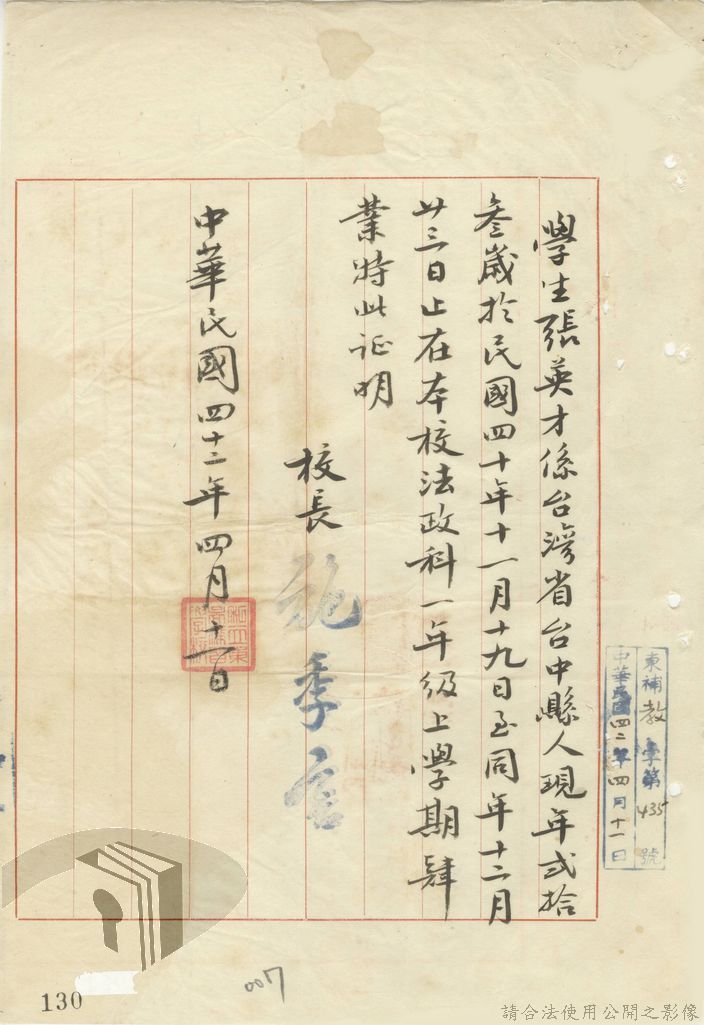 學生張英才係台灣省台中縣人現年弍拾
叁歲於民國四十年十一月十九日至同年十二月
廿三日止在本校法政科一年級上學期肄
業特此证明
校長
施季言
中華民國四十二年四月十一日
東補教字第435號
中華民國四二年四月十一日
130
007
請合法使用公開之影像